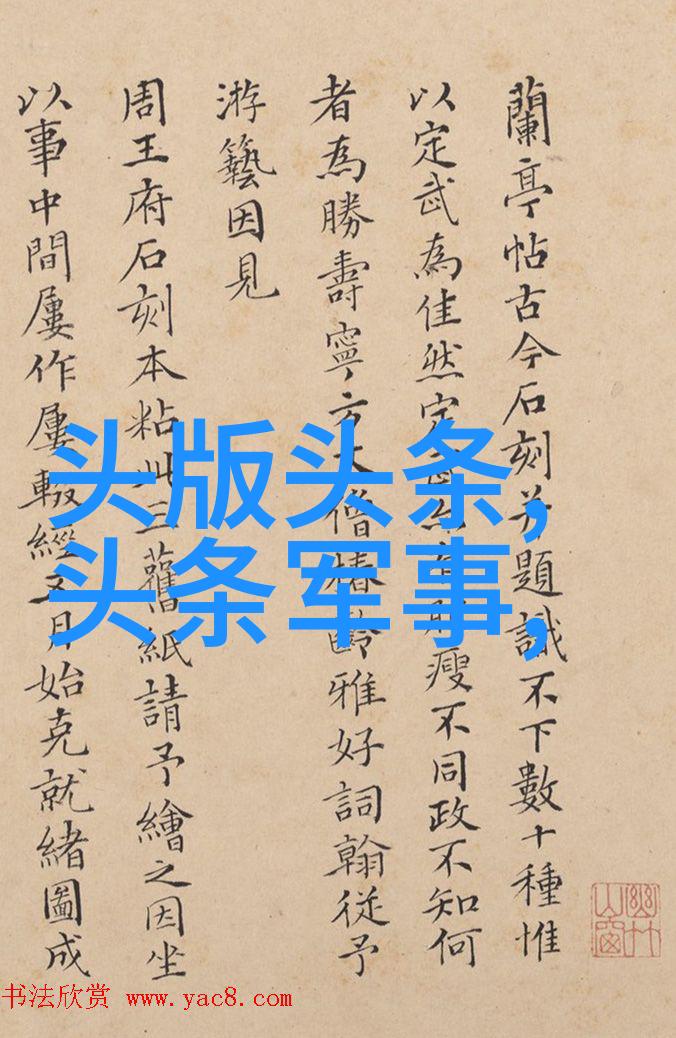 蘭亭帖古今石刻并題識不下數十種惟
以定武為佳然定武有肥瘦不同政不知何
者為勝壽寧方丈僧椿齡雅好詞翰從予
游藝因見
周王府石刻本粘此三舊紙請予繪之因坐
以事中間屢作屢輟經月始克就緒圖成
头版头条,
头条军事,
幽竹山窗
书法欣赏 www.yac8.com